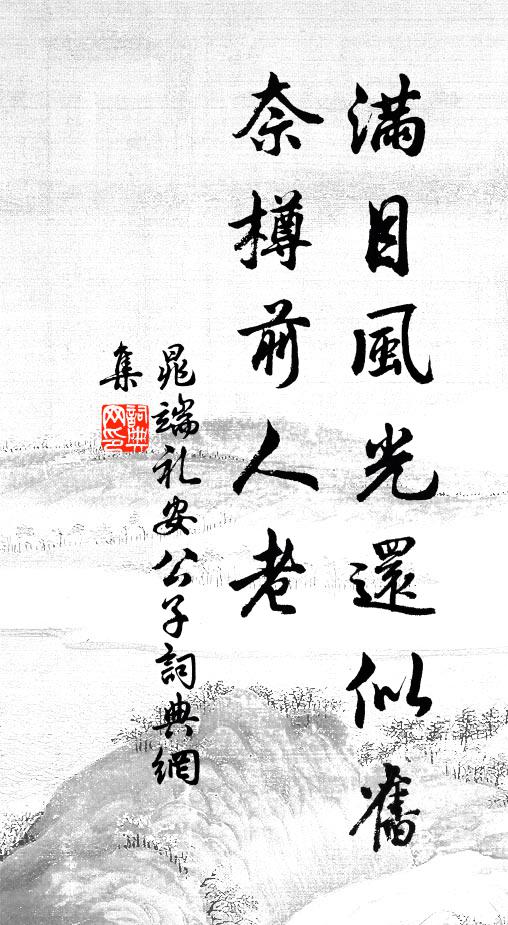 滿目風光還似舊
奈樽前人老
晁端礼安公子詞典網
集
詞典
网印